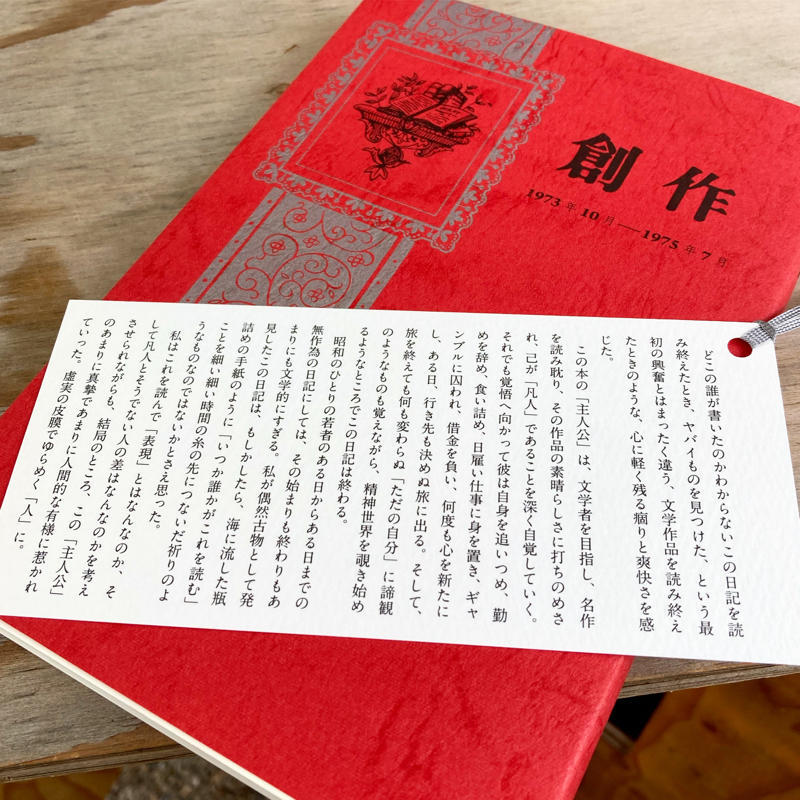 創作
1973年10月──1975年7月
どこの誰が書いたのかわからないこの日記を読
み終えたとき、ヤバイものを見つけた、という最
初の興奮とはまったく違う、文学作品を読み終え
たときのような、心に軽く残る痼りと爽快さを感
じた。
この本の「主人公」は、文学者を目指し、名作
を読み耽り、その作品の素晴らしさに打ちのめさ
れ、己が「凡人」であることを深く自覚していく。
それでも覚悟へ向かって彼は自身を追いつめ、勤
めを辞め、食い詰め、日雇い仕事に身を置き、ギャ
ンブルに囚われ、借金を負い、何度も心を新たに
し、ある日、行き先も決めぬ旅に出る。そして、
旅を終えても何も変わらぬ「ただの自分」に諦観
のようなものも覚えながら、精神世界を覗き始め
るようなところでこの日記は終わる。
昭和のひとりの若者のある日からある日までの
無作為の日記にしては、その始まりも終わりもあ
まりにも文学的にすぎる。私が偶然古物として発
見したこの日記は、もしかしたら、海に流した瓶
詰めの手紙のように「いつか誰かがこれを読む」
ことを細い細い時間の糸の先につないだ祈りのよ
うなものなのではないかとさえ思った。
私はこれを読んで「表現」とはなんなのか、そ
して凡人とそうでない人の差はなんなのかを考え
させられながらも、結局のところ、この「主人公」
のあまりに真摯であまりに人間的な有様に惹かれ
ていった。虚実の皮膜でゆらめく「人」に。